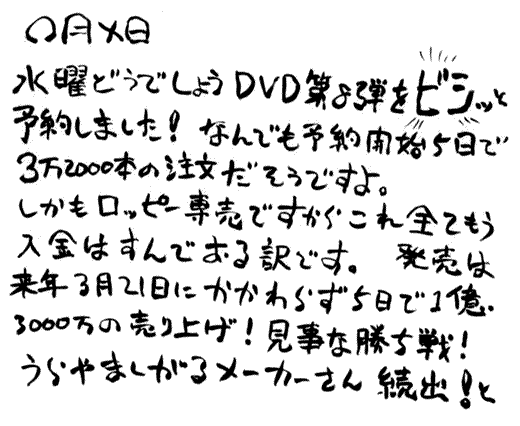 〇月×日
水曜どうでしょうDVD第8弾をビシッと
予約しました！なんでも予約開始5日で
3万2000本の注文だそうですよ。
しかもロッピー専売ですからこれ全てもう
入金はすんでおる訳です。発売は
来年3月21日にかかわらず5日で1億
3000万の売り上げ！見事な勝ち戦！
うらやましがるメーカーさん続出！と